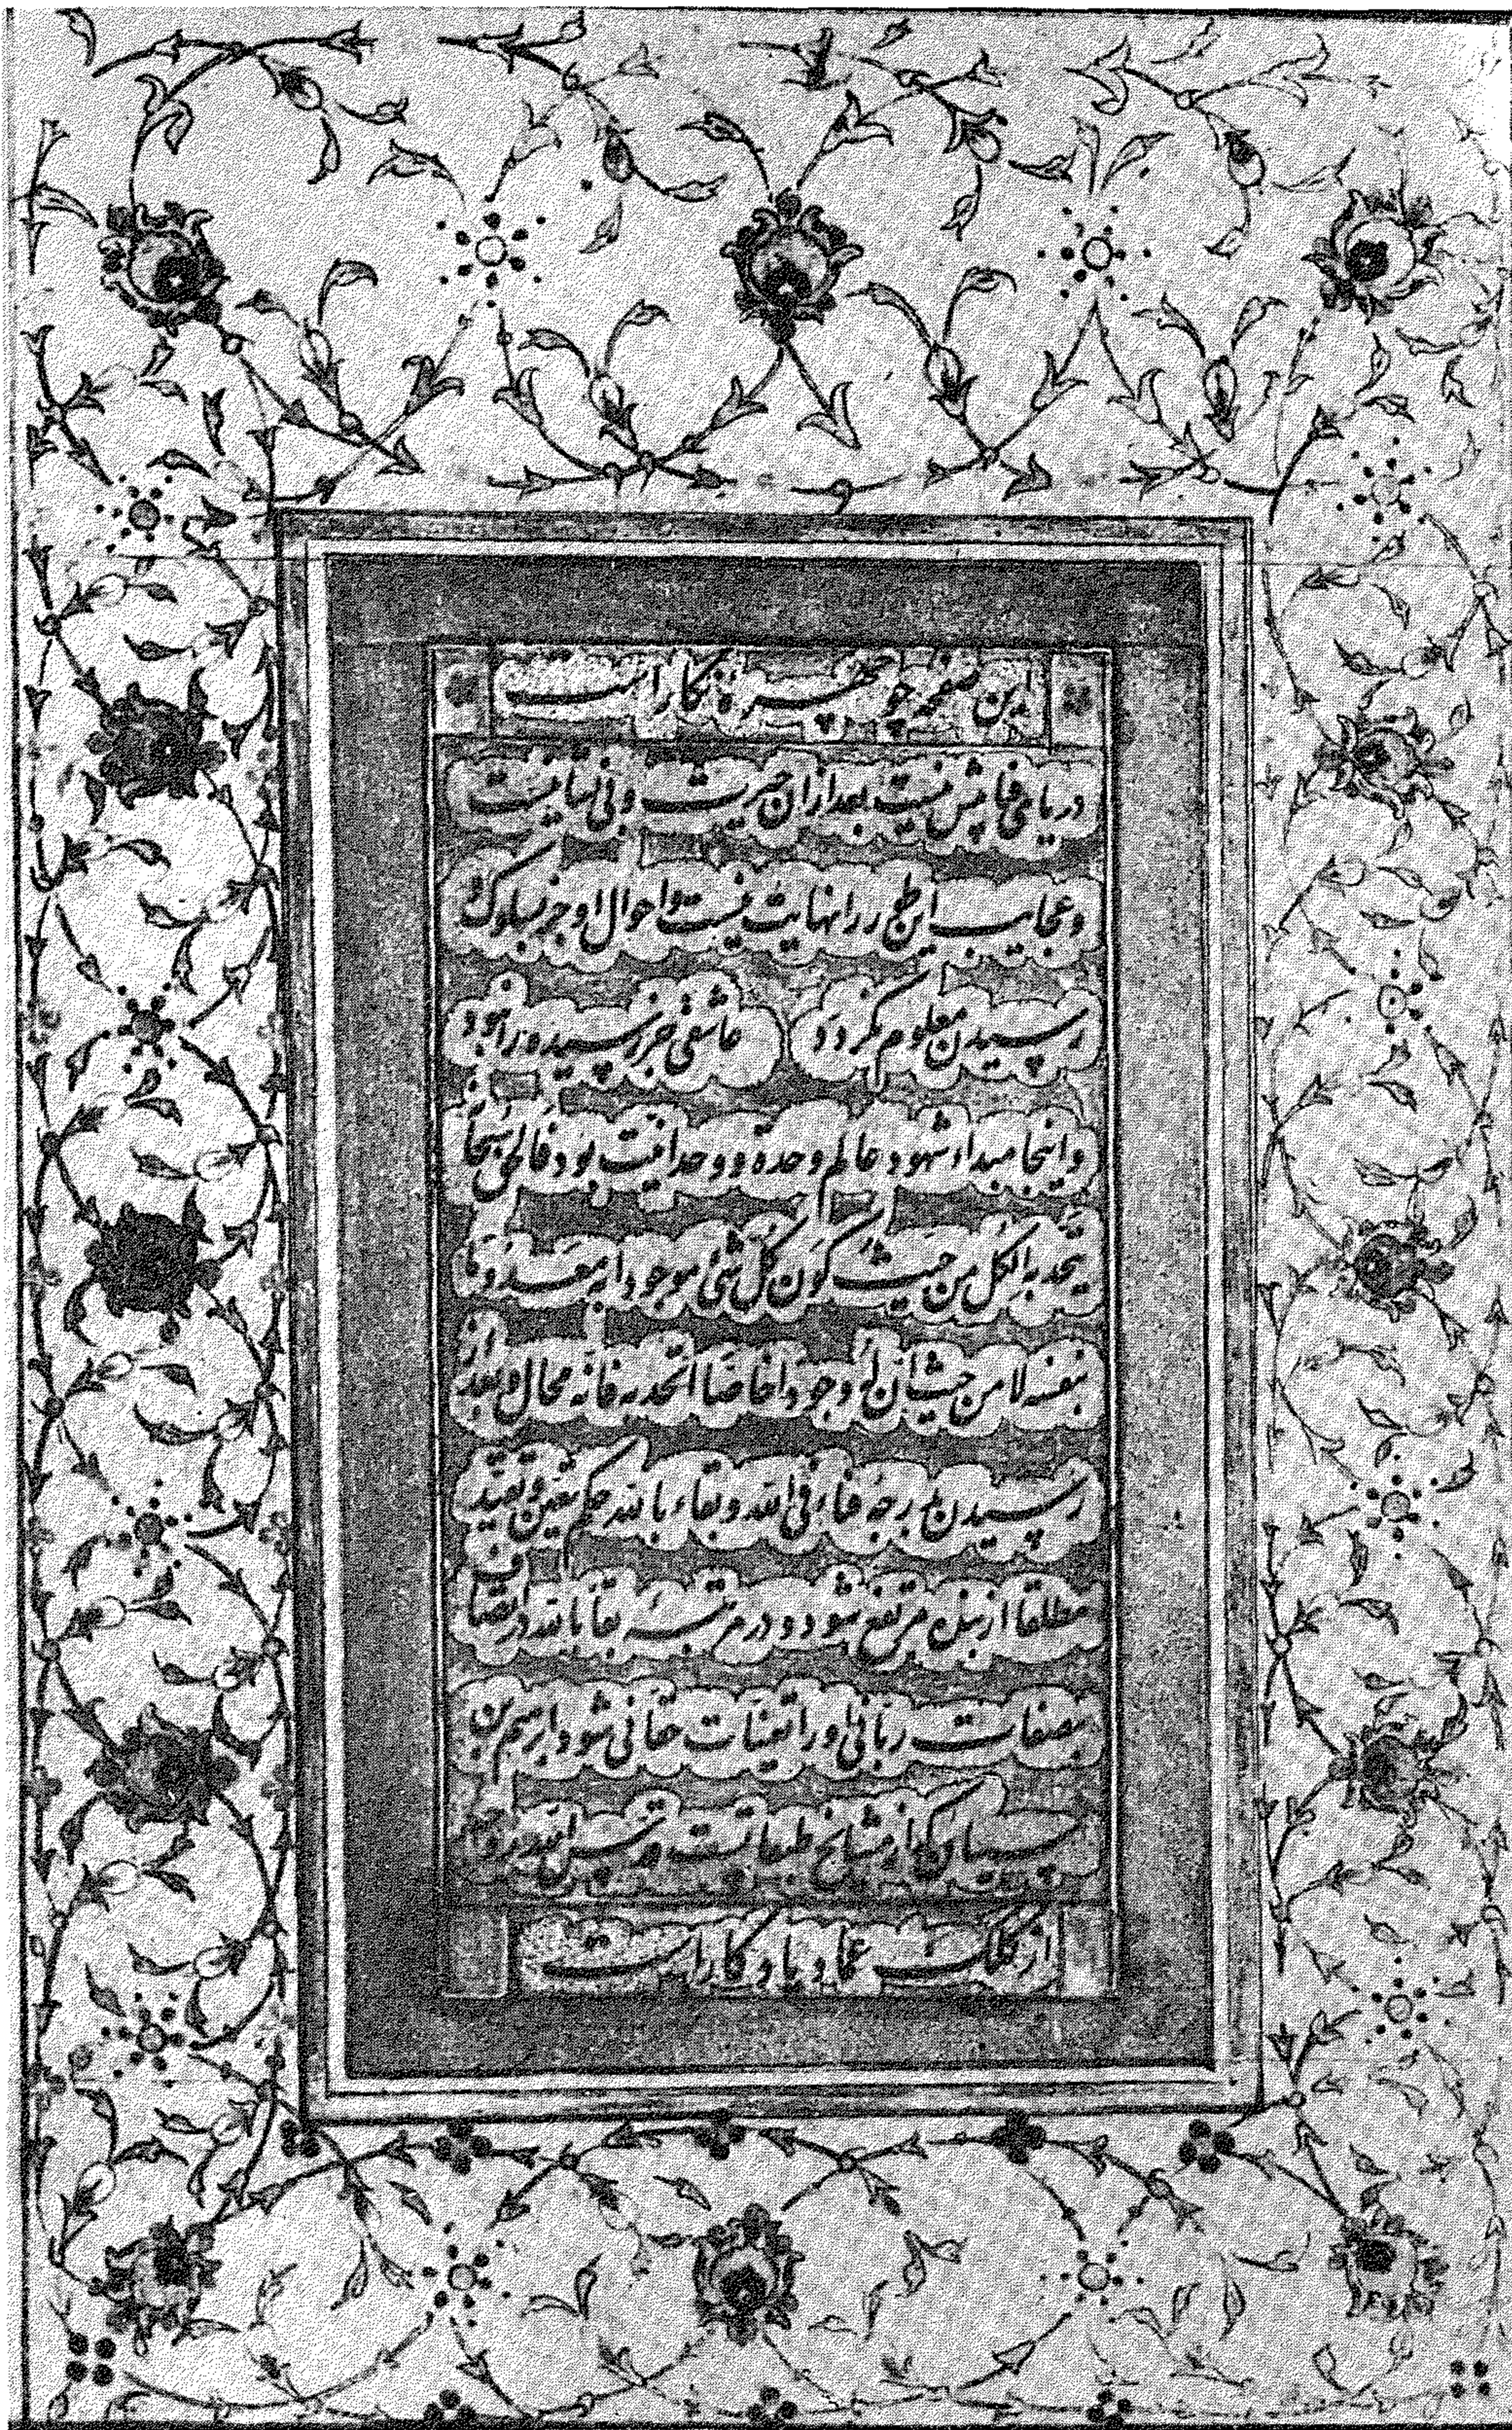 این صفحه چو چهره نگار است
دریای فنا پیش نیست بعد از ان حیرت و بی نهایت
و عجایب این طور را نهایت نیست و احوال او جز بسلوک
رسیدن معلوم نکردد عاشقی جز رسیده را نبود
و اینجا مبداء شهود عالم وحدة و وحدانیت بود
یتحد به الکل من حیث کون کل شی موجودا به معدوما
بنفسه لا من حیث ان له وجودا خاصا اتحد به فانه محال و بعد از
رسیدن بدرجه فناء فی الله و بقاء بالله حکم تعین و تقید
مطلقا ازین مرتفع شود و در مرتبه بقا بالله در
بصفات ربانی و را تعینات حقانی شود
از مشایخ طبقاتست
از کلک عماد یادکار است